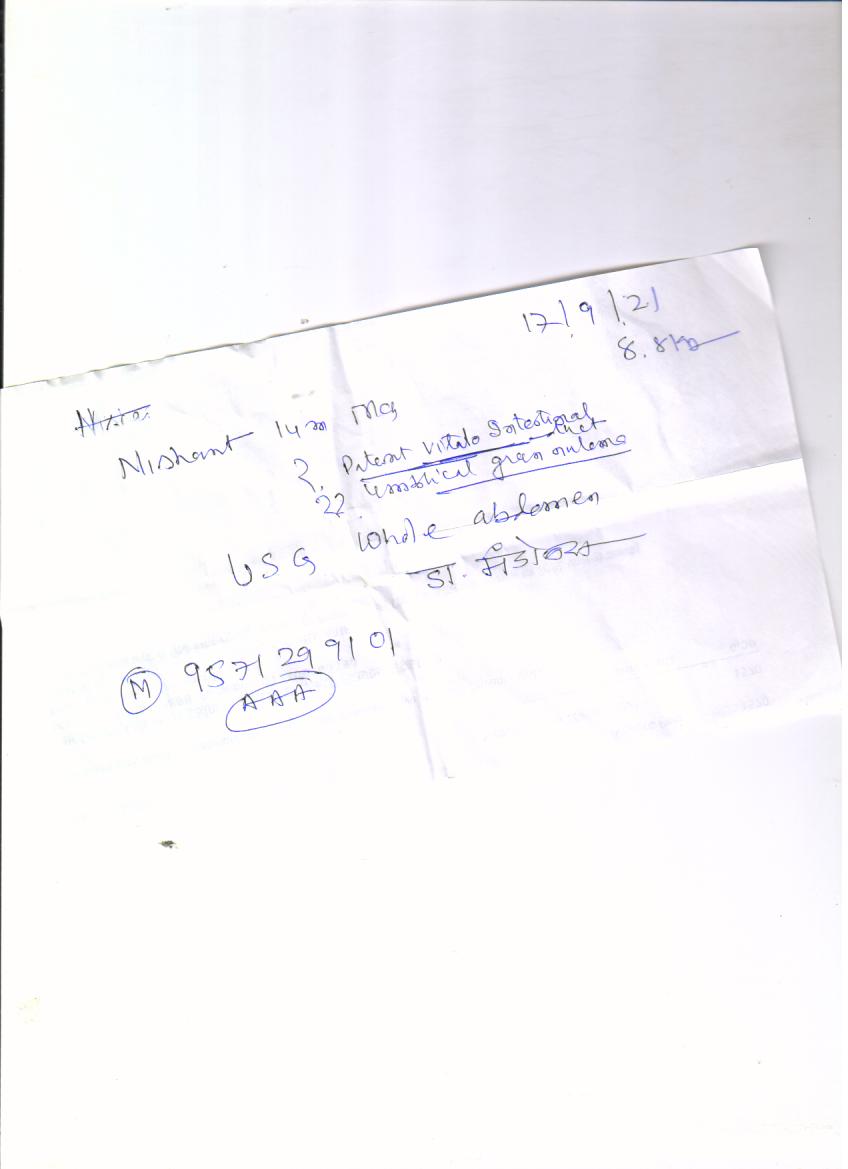 17/9/21
8.8 kg
Nishant 14m Mg
?. Patent Vitalo Intestional duct
??. Umblical granuloma
USG Whole abdomen
डा.
M 9571299101
AAA